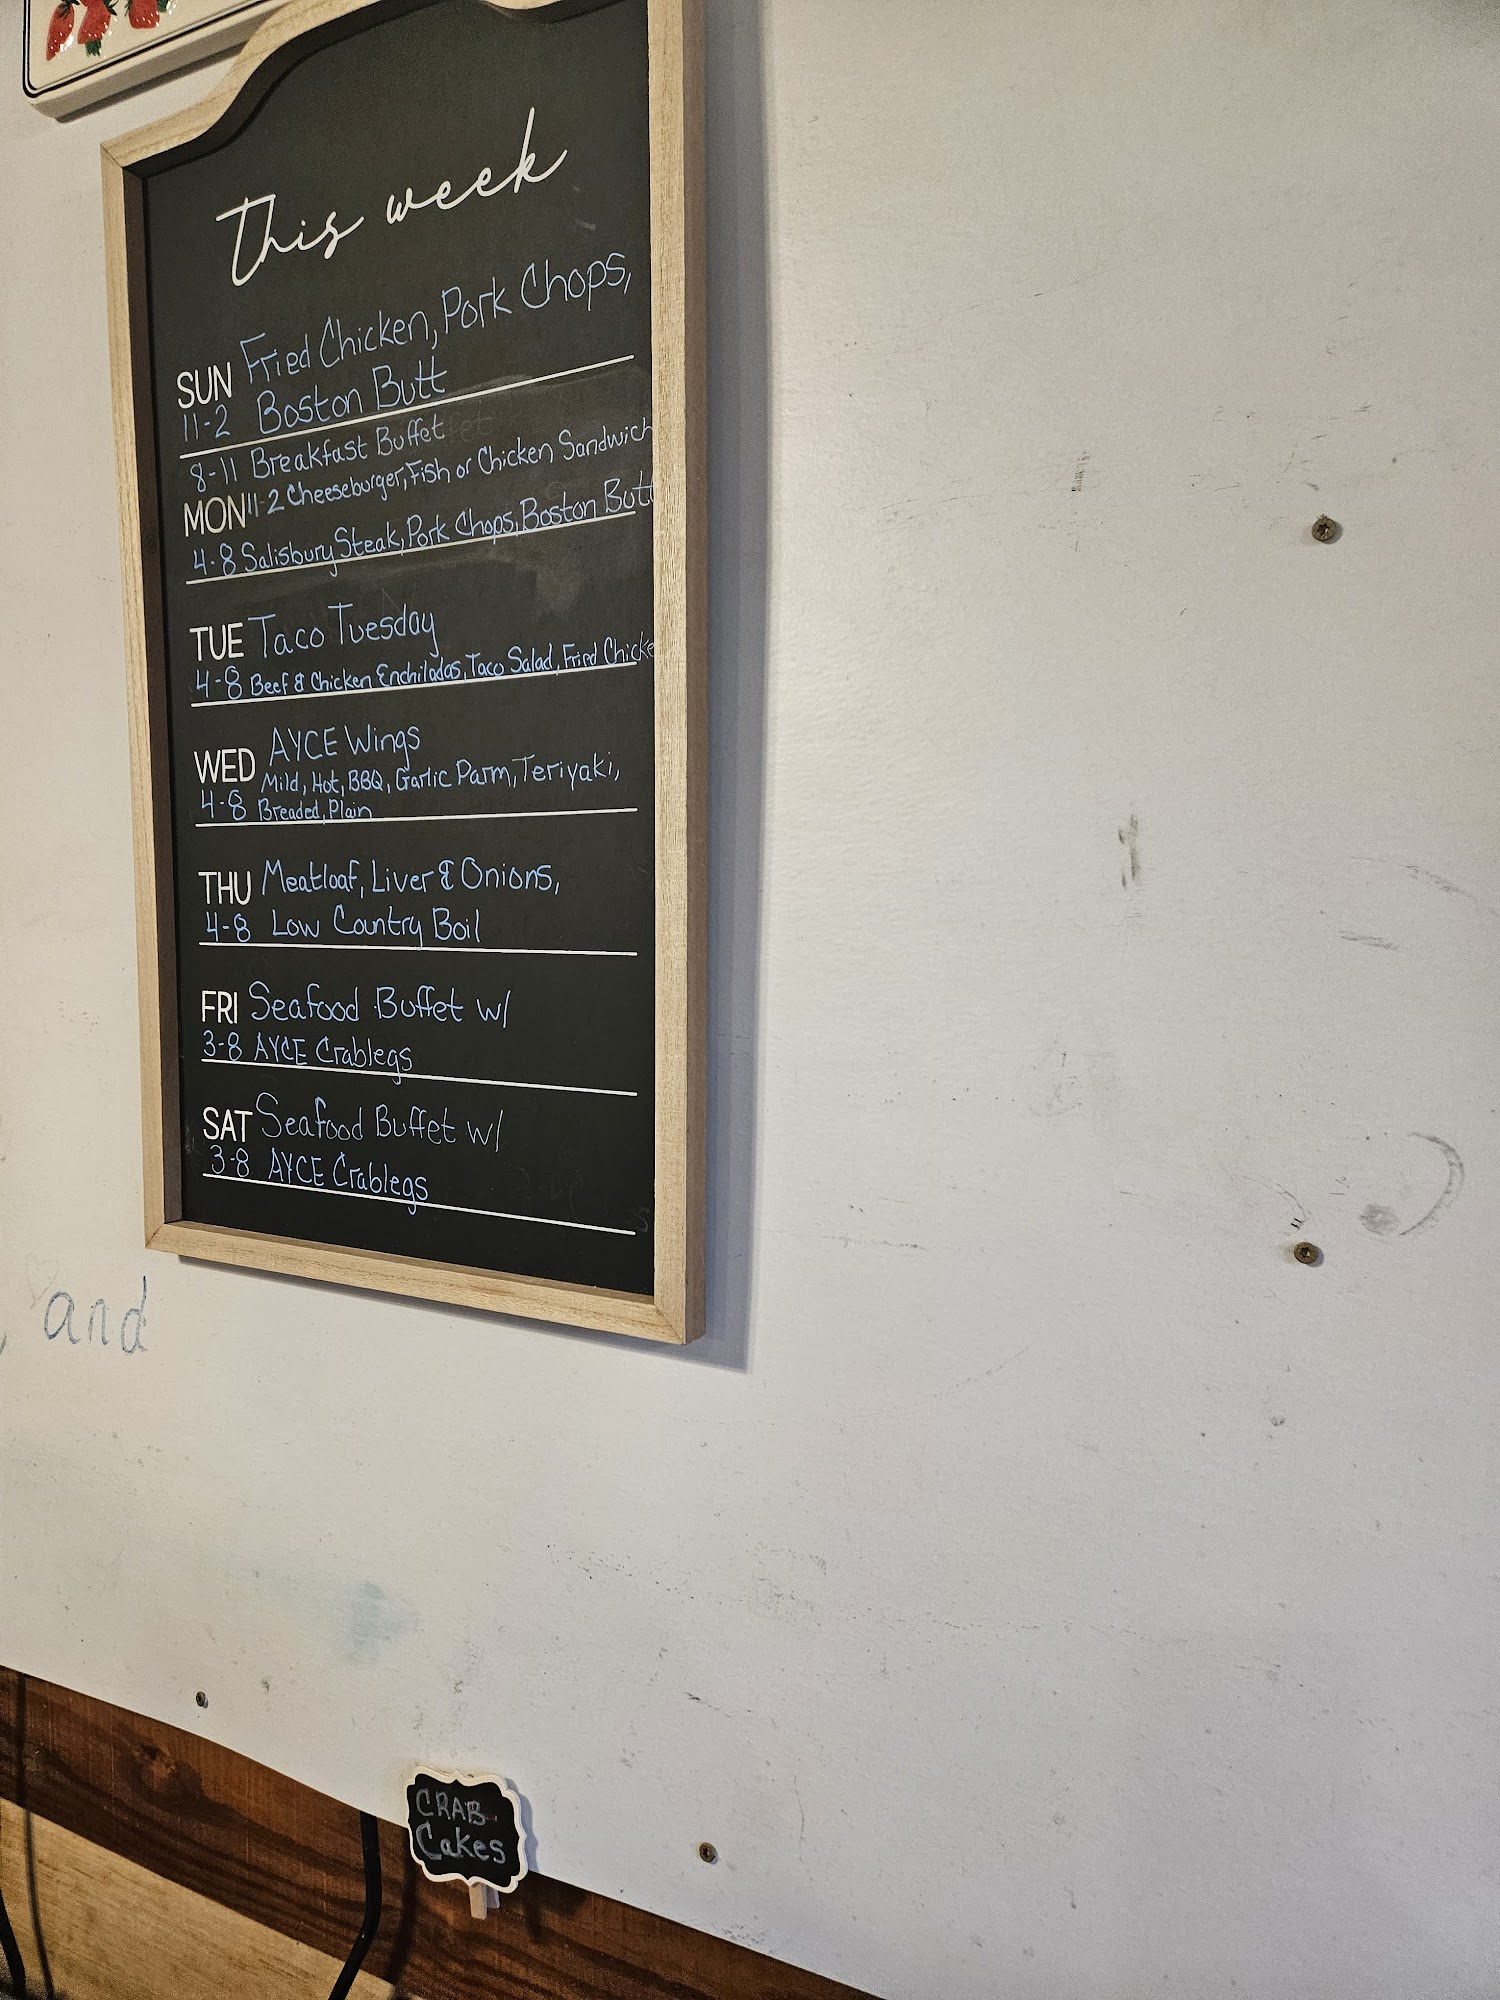 This week
Fried Chicken, Pork Chops,
SUN
11-2 Boston Butt
8-11 Breakfast Buffet
MON 11-2 Cheeseburger, Fish or Chicken Sandwich
4-8 Salisbury Steak, Pork Chops, Boston Butt
TUE Taco Tuesday
4-8 Beef & Chicken Enchiladas, Taco Salad, Fried Chicke
AYCE Wings
WED Mild, Hot, BBQ, Garlic Parm, Teriyaki,
4-8 Breaded, Plain
THU Meatloaf, Liver & Onions,
4-8 Low Country Boil
FRI Seafood Buffet w/
3-8 AYCE Crablegs
SAT Seafood Buffet w/
3-8 AYCE Crablegs
, and
CRAB
Cakes